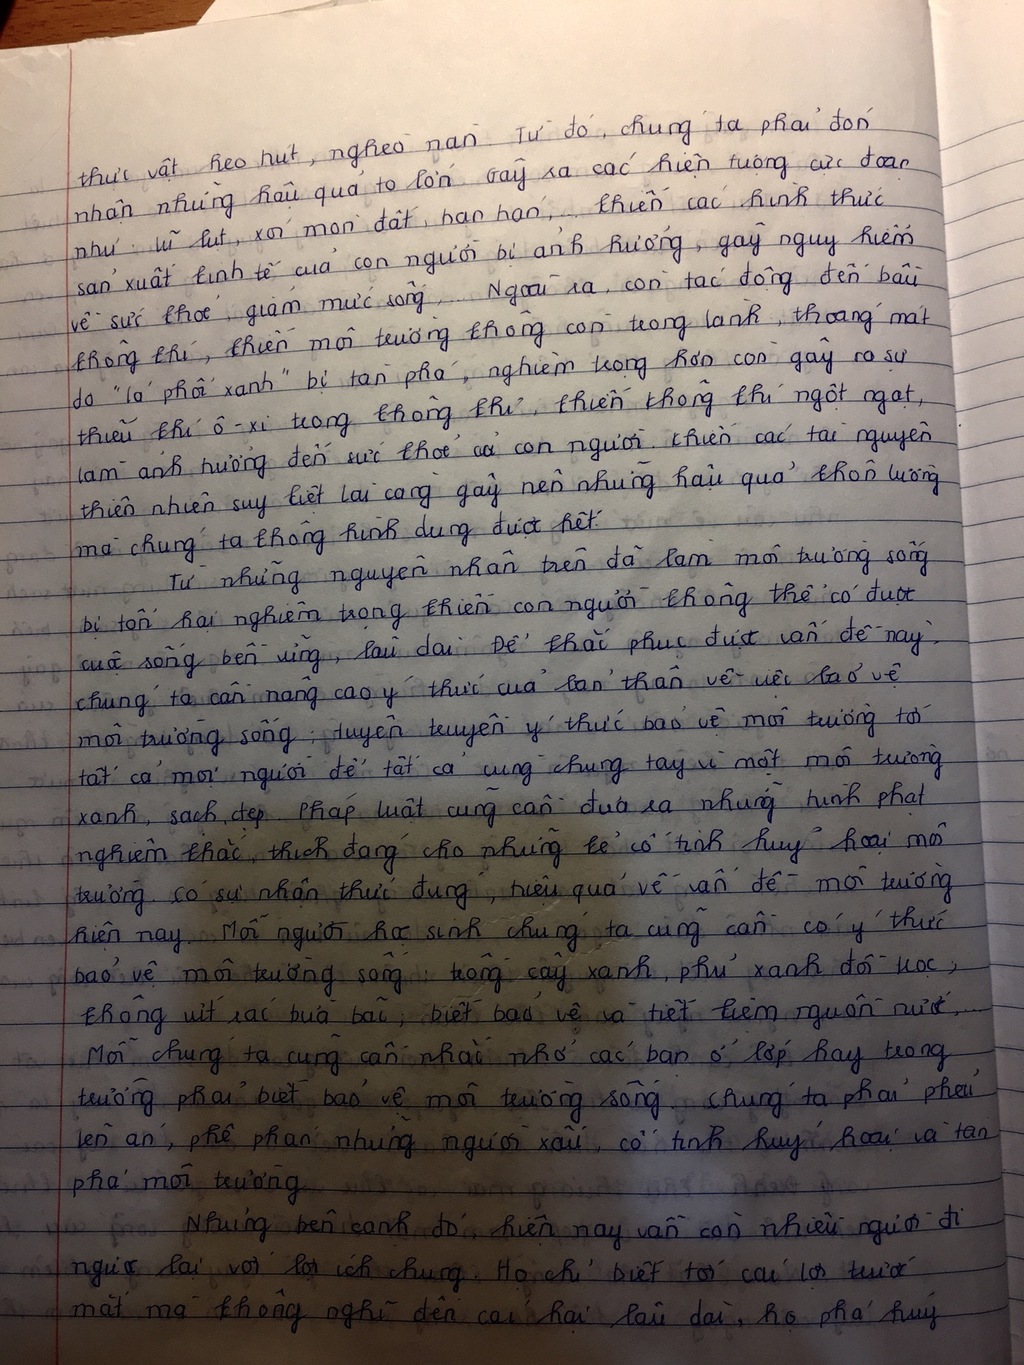 thực vật héo hút, nghèo nàn. Từ đó, chúng ta phải đón
nhận những hậu quả to lớn. Gây ra các hiện tượng cực đoan
như: lũ lụt, xói mòn đất, hạn hán,... khiến các hình thức
sản xuất kinh tế của con người bị ảnh hưởng, gây nguy hiểm
về sức khoẻ, giảm mức sống,... Ngoài ra, còn tác động đến bầu
không khí, khiến môi trường không còn trong lành, thoáng mát
do "lá phổi xanh" bị tàn phá, nghiêm trọng hơn còn gây ra sự
thiếu khí ô-xi trong không khí, khiến không khí ngột ngạt,
làm ảnh hưởng đến sức khoẻ cả con người. Khiến các tài nguyên
thiên nhiên suy kiệt lại càng gây nên những hậu quả khôn lường
mà chúng ta không hình dung được hết.
Từ những nguyên nhân trên đã làm môi trường sống
bị tổn hại nghiêm trọng khiến con người không thể có được
cuộc sống bền vững, lâu dài. Để khắc phục được vấn đề này,
chúng ta cần nâng cao ý thức của bản thân về việc bảo vệ
môi trường sống; tuyên truyền ý thức bảo vệ môi trường tới
tất cả mọi người để tất cả cùng chung tay vì một môi trường
xanh, sạch, đẹp. Pháp luật cũng cần đưa ra những hình phạt
nghiêm khắc, thích đáng cho những kẻ cố tình huỷ hoại môi
trường. Có sự nhận thức đúng, hiệu quả về vấn đề môi trường
hiện nay. Mỗi người học sinh chúng ta cũng cần có ý thức
bảo vệ môi trường sống: trồng cây xanh, phủ xanh đồi trọc,
không vứt rác bừa bãi, biết bảo vệ và tiết kiệm nguồn nước,...
Mỗi chúng ta cũng cần nhắc nhở các bạn ở lớp hay trong
trường phải biết bảo vệ môi trường sống. Chúng ta phải
lên án, phê phán những người xấu, cố tình huỷ hoại và tàn
phá môi trường.
Nhưng bên cạnh đó, hiện nay vẫn còn nhiều người đi
ngược lại với lợi ích chung. Họ chỉ biết tới cái lợi trước
mắt mà không nghĩ đến cái hại lâu dài, họ phá huỷ